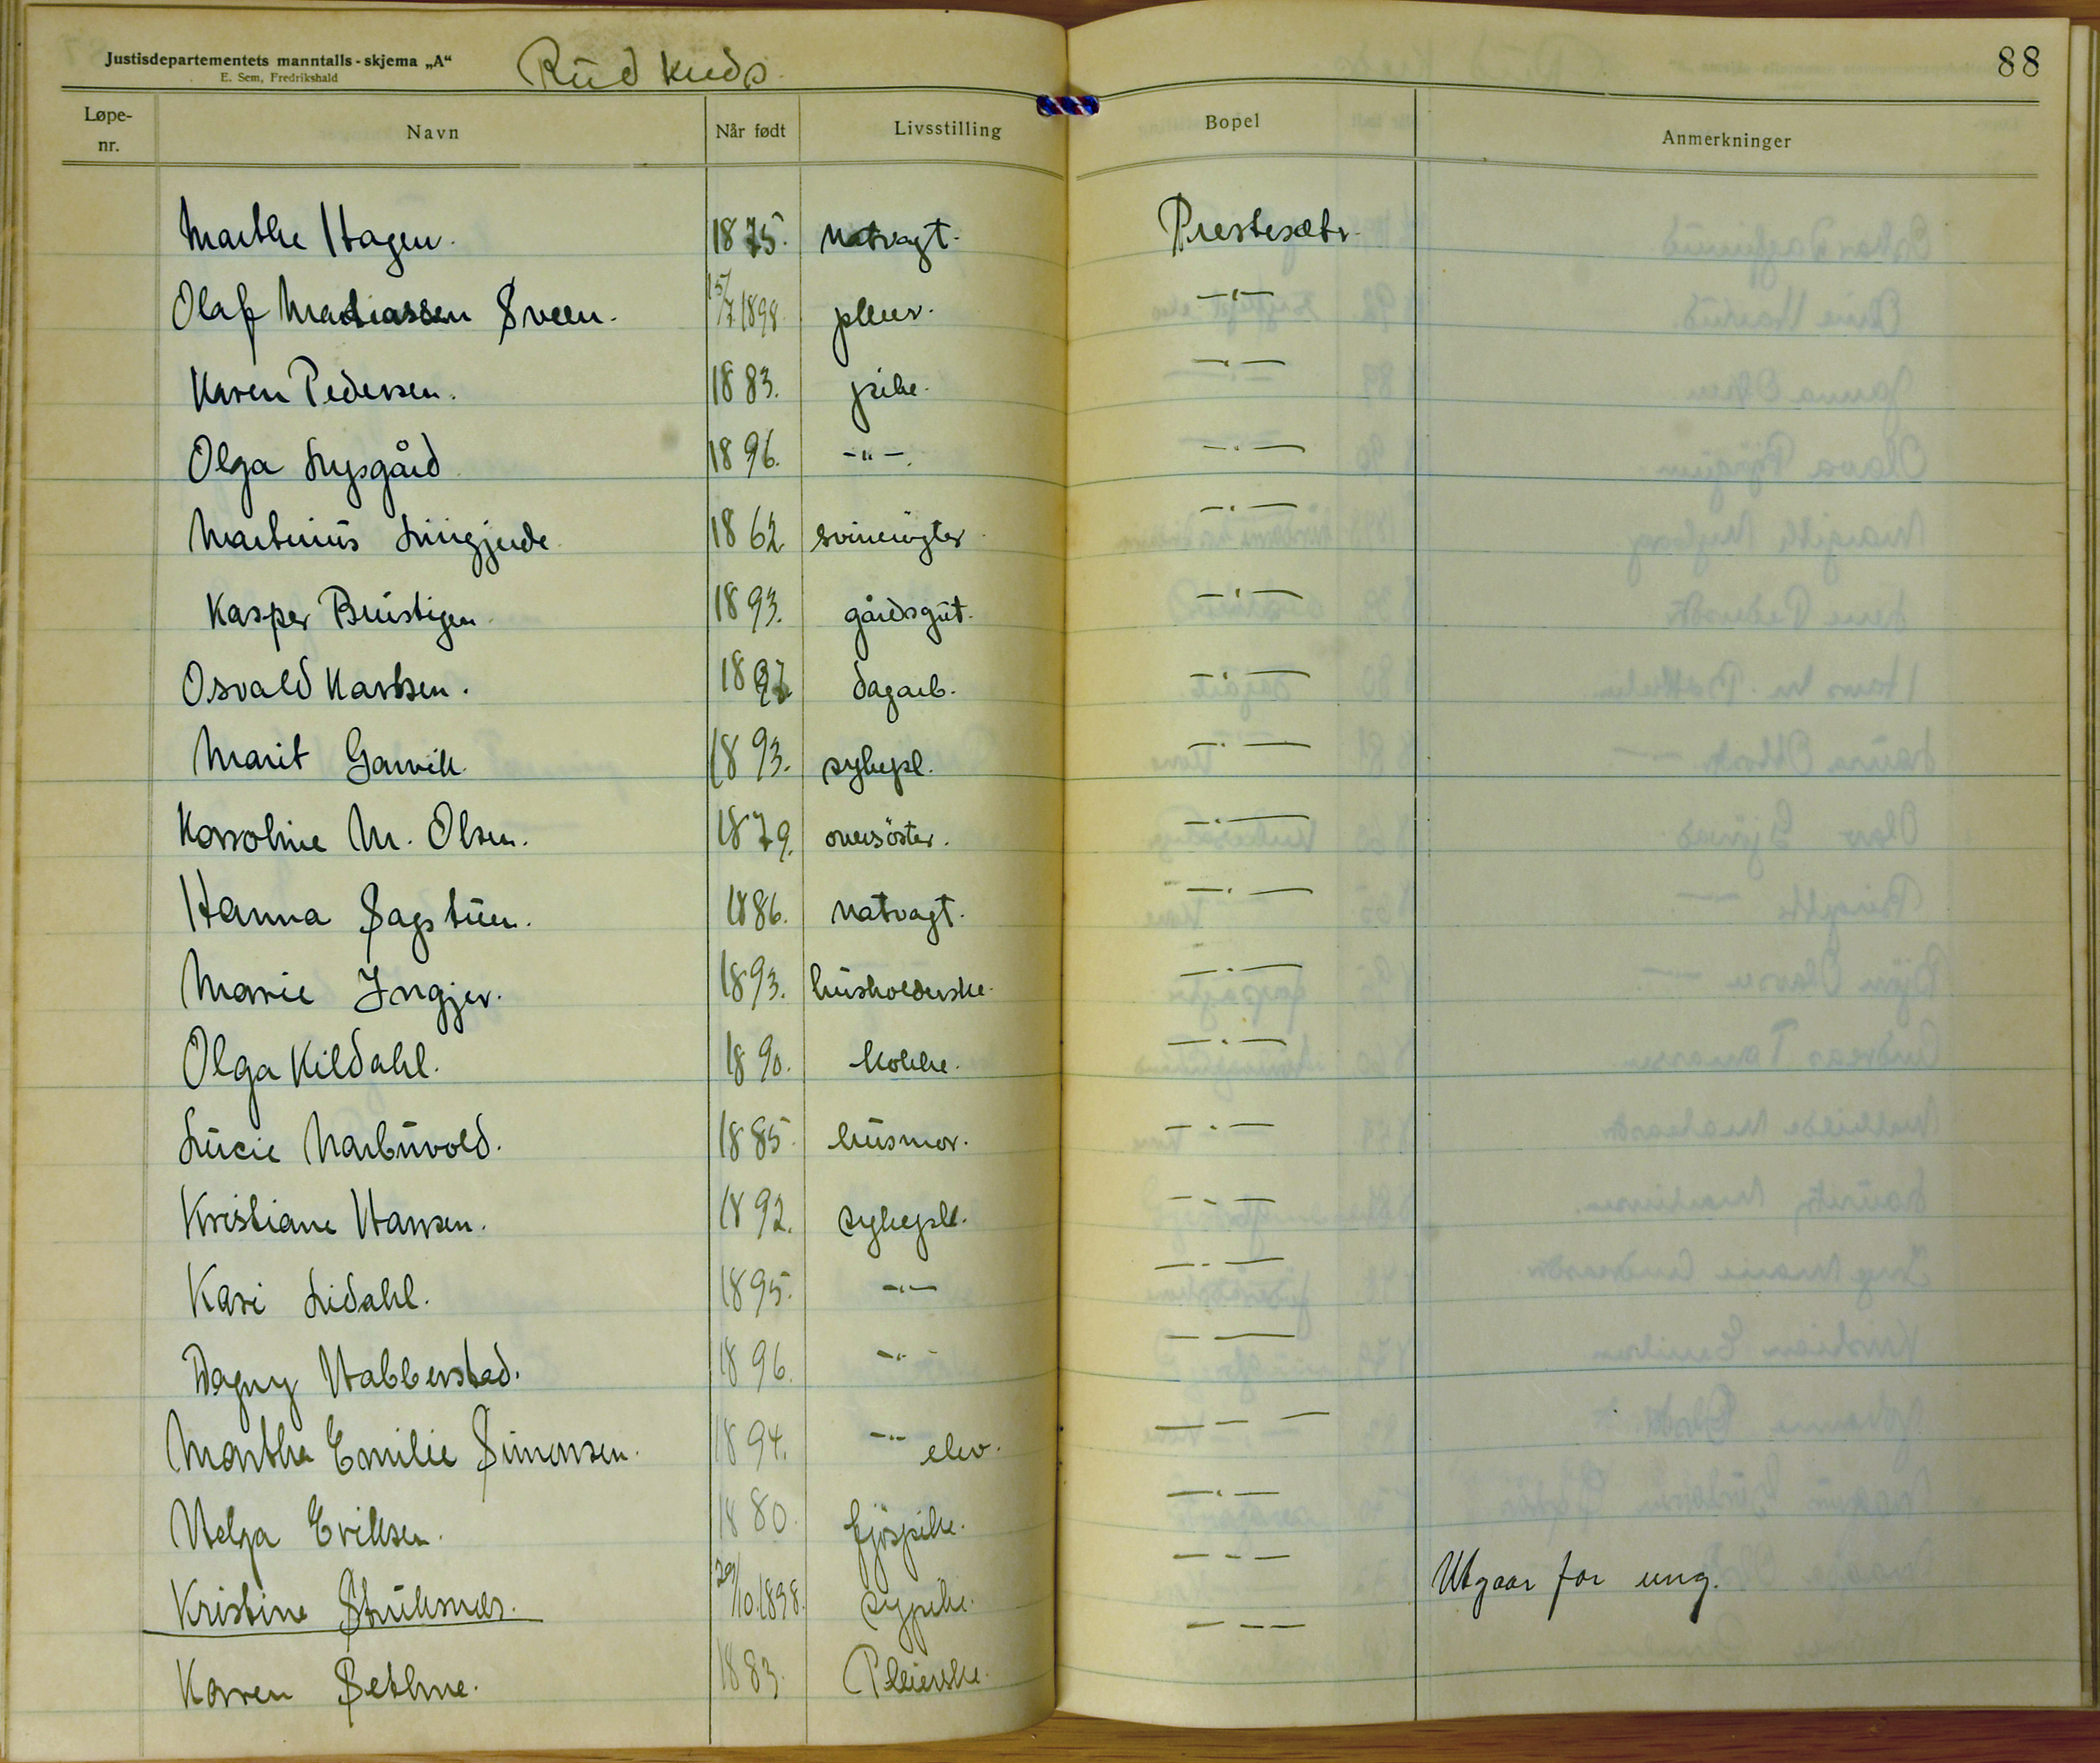 Justisdepartementets manntalls-skjema „A“
E. Sem, Fredrikshald
Rud kreds
88
Løpe-nr. Navn Når født Livsstilling Bopel Anmerkninger
Marthe Hagen. 1875. natvagt. Prestesætr.
Olaf Mathiassen Sveen. 15/7 1898. pleier. —"—
Karen Pedersen. 1883. pike. —"—
Olga Lysgård 1896. —"—. —"—
Martinius Lingjerde 1862 svinerögter —"—
Kasper Brustigen 1893. gårdsgut. —"—
Osvald Karlsen. 1897 dagarb. —"—
Marit Garvik. 1893. sykepl. —"—
Karoline M. Olsen. 1879. oversöster. —"—
Hanna Sagstuen. 1886. natvagt. —"—
Marie Ingjer. 1893. husholderske. —"—
Olga Kildahl. 1890. kokke. —"—
Lucie Narbuvold. 1885. husmor. —"—
Kristiane Hansen. 1892. sykepl. —"—
Kari Lidahl. 1895. —"— —"—
Dagny Habberstad. 1896. —"— — —
Marthe Emilie Simonsen. 1894. —"— elev. — — —
Helga Eriksen. 1880. fjöspike. —"—
Kristine Stuksnes. 29/10.1898. sypike. — - — Utgaar for ung.
Karen Sethne. 1883. Pleierske. — — —